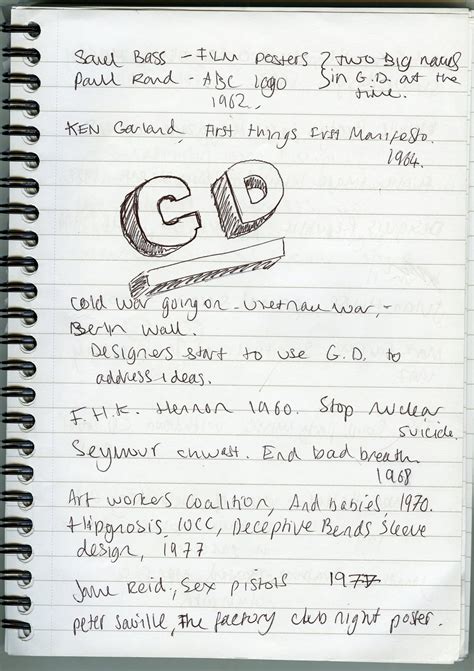 Saul Bass - FILM posters } two big names
Paul Rand - ABC logo } in G.D. at the
1962. time.
KEN Garland, First things first Manifesto.
1964.
GD
Cold war going on - Vietnam war, -
Berlin Wall.
Designers start to use G.D. to
address ideas.
F.H.K. Henrion 1960. Stop nuclear
suicide.
Seymour chwast. End bad breath
1968
Art workers coalition, And babies 1970.
Hipgnosis, 10CC, Deceptive Bends sleeve
design, 1977
Jane Reid, Sex pistols 1977
peter saville, the factory club night poster.